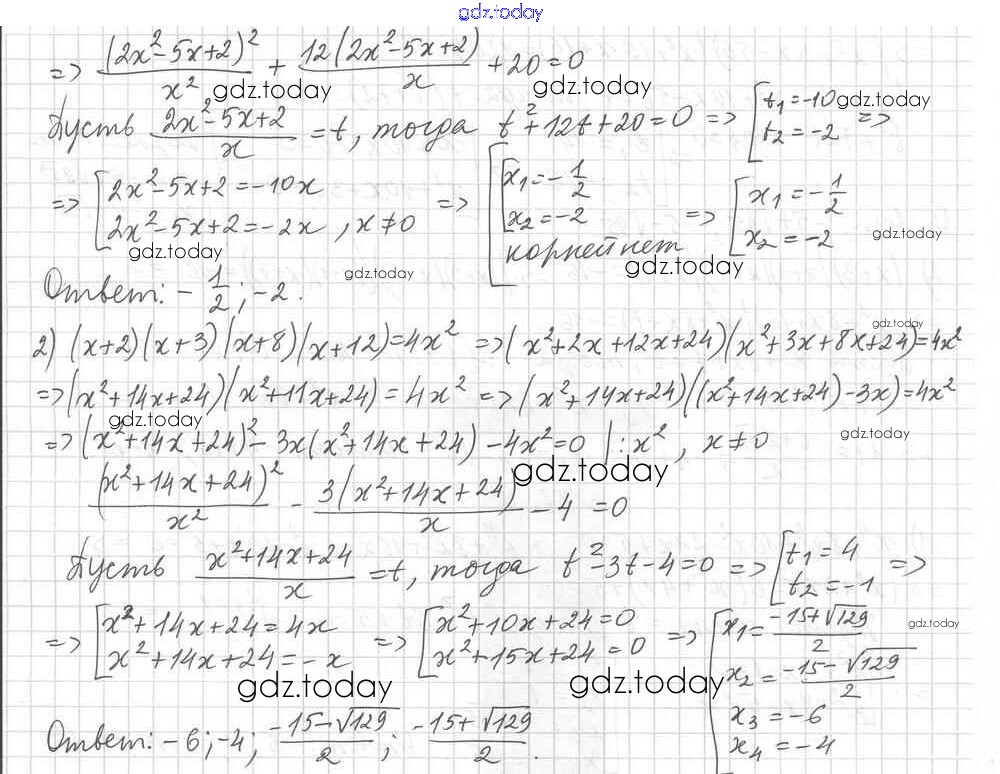 gdz.today
=> (2x²-5x+2)²/x² + 12(2x²-5x+2)/x + 20 = 0
gdz.today gdz.today
Пусть (2x²-5x+2)/x = t, тогда t²+12t+20=0 => [t₁=-10 t₂=-2 =>
gdz.today
=> [2x²-5x+2=-10x 2x²-5x+2=-2x, x≠0 => [[x₁=-1/2 x₂=-2 корней нет => [x₁=-1/2 x₂=-2
gdz.today gdz.today gdz.today
Ответ: -1/2; -2.
gdz.today
gdz.today
2) (x+2)(x+3)(x+8)(x+12)=4x² =>(x²+2x+12x+24)(x²+3x+8x+24)=4x²
=>(x²+14x+24)(x²+11x+24)=4x² =>(x²+14x+24)((x²+14x+24)-3x)=4x²
gdz.today
=>(x²+14x+24)²-3x(x²+14x+24)-4x²=0 |:x², x≠0
gdz.today gdz.today
(x²+14x+24)²/x² - 3(x²+14x+24)/x - 4 = 0
Пусть (x²+14x+24)/x = t, тогда t²-3t-4=0 => [t₁=4 t₂=-1 =>
=> [x²+14x+24=4x x²+14x+24=-x => [x²+10x+24=0 x²+15x+24=0 => [x₁=(-15+√129)/2 x₂=(-15-√129)/2 x₃=-6 x₄=-4
gdz.today gdz.today gdz.today
Ответ: -6; -4; (-15-√129)/2; (-15+√129)/2.